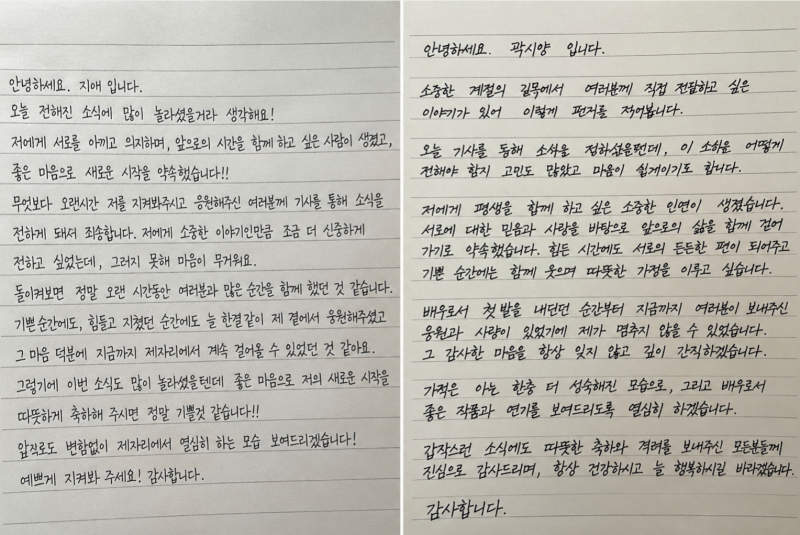 안녕하세요. 지애 입니다.
오늘 전해진 소식에 많이 놀라셨을거라 생각해요!
저에게 서로를 아끼고 의지하며, 앞으로의 시간을 함께 하고 싶은 사람이 생겼고,
좋은 마음으로 새로운 시작을 약속했습니다!!
무엇보다 오랜시간 저를 지켜봐주시고 응원해주신 여러분께 기사를 통해 소식을
전하게 돼서 죄송합니다. 저에게 소중한 이야기인만큼 조금 더 신중하게
전하고 싶었는데, 그러지 못해 마음이 무거워요.
돌이켜보면 정말 오랜 시간동안 여러분과 많은 순간을 함께 했던 것 같습니다.
기쁜순간에도, 힘들고 지쳤던 순간에도 늘 한결같이 제 곁에서 응원해주셨고
그 마음 덕분에 지금까지 제자리에서 계속 걸어올 수 있었던 것 같아요.
그렇기에 이번 소식도 많이 놀라셨을텐데 좋은 마음으로 저의 새로운 시작을
따뜻하게 축하해 주시면 정말 기쁠것 같습니다!!
앞으로도 변함없이 제자리에서 열심히 하는 모습 보여드리겠습니다!
예쁘게 지켜봐 주세요! 감사합니다.
안녕하세요. 곽시양 입니다.
소중한 계절의 길목에서 여러분께 직접 전달하고 싶은
이야기가 있어 이렇게 편지를 적어봅니다.
오늘 기사를 통해 소식을 접하셨을텐데, 이 소식을 어떻게
전해야 할지 고민도 많았고 마음이 쉽게이기도 합니다.
저에게 평생을 함께 하고 싶은 소중한 인연이 생겼습니다.
서로에 대한 믿음과 사랑을 바탕으로 앞으로의 삶을 함께 걸어
가기로 약속했습니다. 힘든 시간에도 서로의 든든한 편이 되어주고
기쁜 순간에는 함께 웃으며 따뜻한 가정을 이루고 싶습니다.
배우로서 첫 발을 내딛던 순간부터 지금까지 여러분이 보내주신
응원과 사랑이 있었기에 제가 멈추지 않을 수 있었습니다.
그 감사한 마음을 항상 잊지 않고 깊이 간직하겠습니다.
한층 더 성숙해진 모습으로, 그리고 배우로서
좋은 작품과 연기를 보여드리도록 열심히 하겠습니다.
갑작스런 소식에도 따뜻한 축하와 격려를 보내주신 모든분들께
진심으로 감사드리며, 항상 건강하시고 늘 행복하시길 바라겠습니다.
감사합니다.